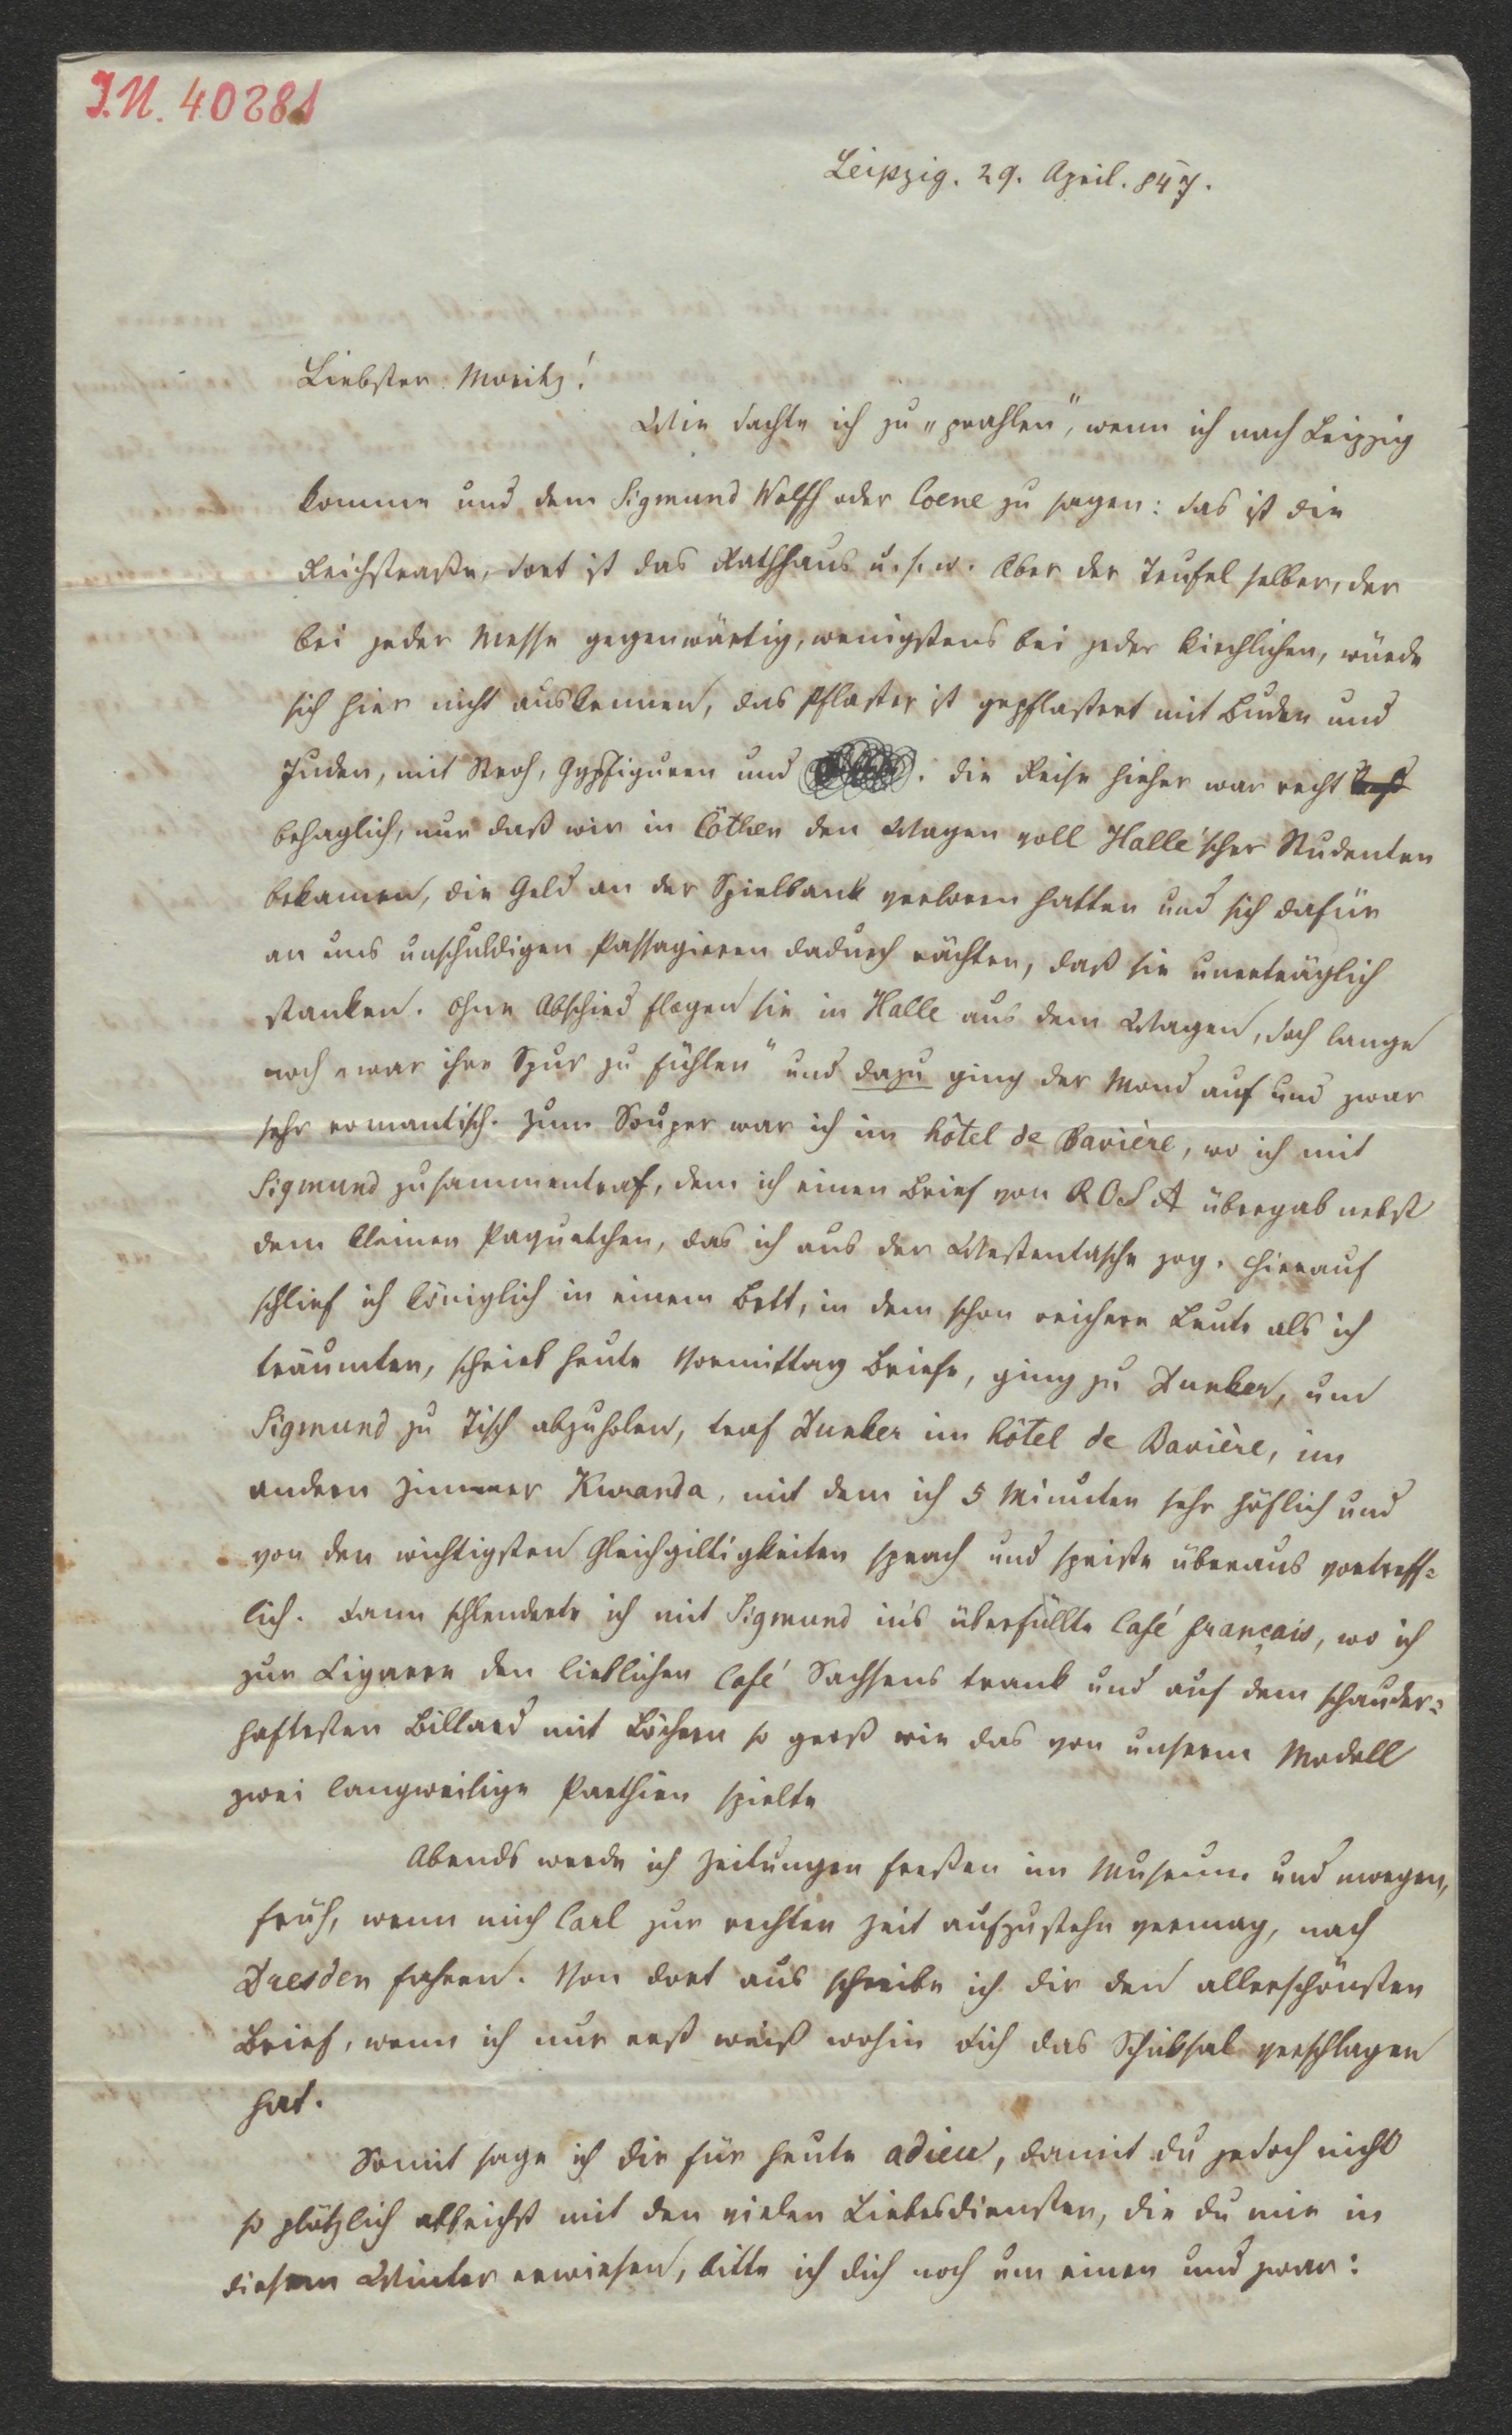 I.N. 40281
Leipzig. 29. April. 847.
Liebster Moritz!
Wie dachte ich zu „prahlen“, wenn ich nach Leipzig
komme und dem Sigmund Wolff oder Coene zu sagen: das ist die
Reichstraße, dort ist das Rathhaus u. s. w. Aber der Teufel selber, der
bei jeder Messe gegenwärtig, wenigstens bei jeder kirchlichen, würde
sich hier nicht auskennen, das Pflaster ist gepflastert mit Buden und
Juden, mit Stroh, Gypsfiguren und . die Reise hieher war recht
behaglich, nur daß wir in Cöthen den Wagen voll Halle'scher Studenten
bekamen, die Geld an der Spielbank verloren hatten und sich dafür
an uns unschuldigen Passagieren dadurch rächten, daß sie unerträglich
stanken. Ohne Abschied flogen sie in Halle aus dem Wagen, doch lange
noch „war ihre Spur zu fühlen“ und dazu ging der Mond auf und zwar
sehr romantisch. Zum Souper war ich im hôtel de Bavière, wo ich mit
Sigmund zusammentraf, dem ich einen Brief von ROSA übergab nebst
dem kleinen Paquetchen, das ich aus der Westentasche zog. Hierauf
schlief ich königlich in einem Bett, in dem schon reichere Leute als ich
träumten, schrieb heute Vormittag Briefe, ging zu Dunker, um
Sigmund zu Tisch abzuholen, traf Dunker im hôtel de Bavière, im
andern Zimmer Kuranda, mit dem ich 5 Minuten sehr höflich und
von den wichtigsten Gleichgiltigkeiten sprach und speiste überaus vortreff=
lich. Dann schlenderte ich mit Sigmund in's überfüllte Café français, wo ich
zur Cigarre den lieblichen Café Sachsens trank und auf dem schauder=
haftesten Billard mit Löchern so groß wie das von unserm Modell
zwei langweilige Parthien spielte
Abends werde ich Zeitungen freßen im Museum und morgen,
früh, wenn mich Carl zur rechten Zeit aufzustehn vermag, nach
Dresden fahren. Von dort aus schreibe ich dir den allerschönsten
Brief, wenn ich nur erst weiß wohin dich das Schicksal verschlagen
hat.
Somit sage ich dir für heute adieu, damit du jedoch nicht
so plötzlich abbrichst mit den vielen Liebesdiensten, die du mir in
diesem Winter erwiesen, bitte ich dich noch um einen und zwar: